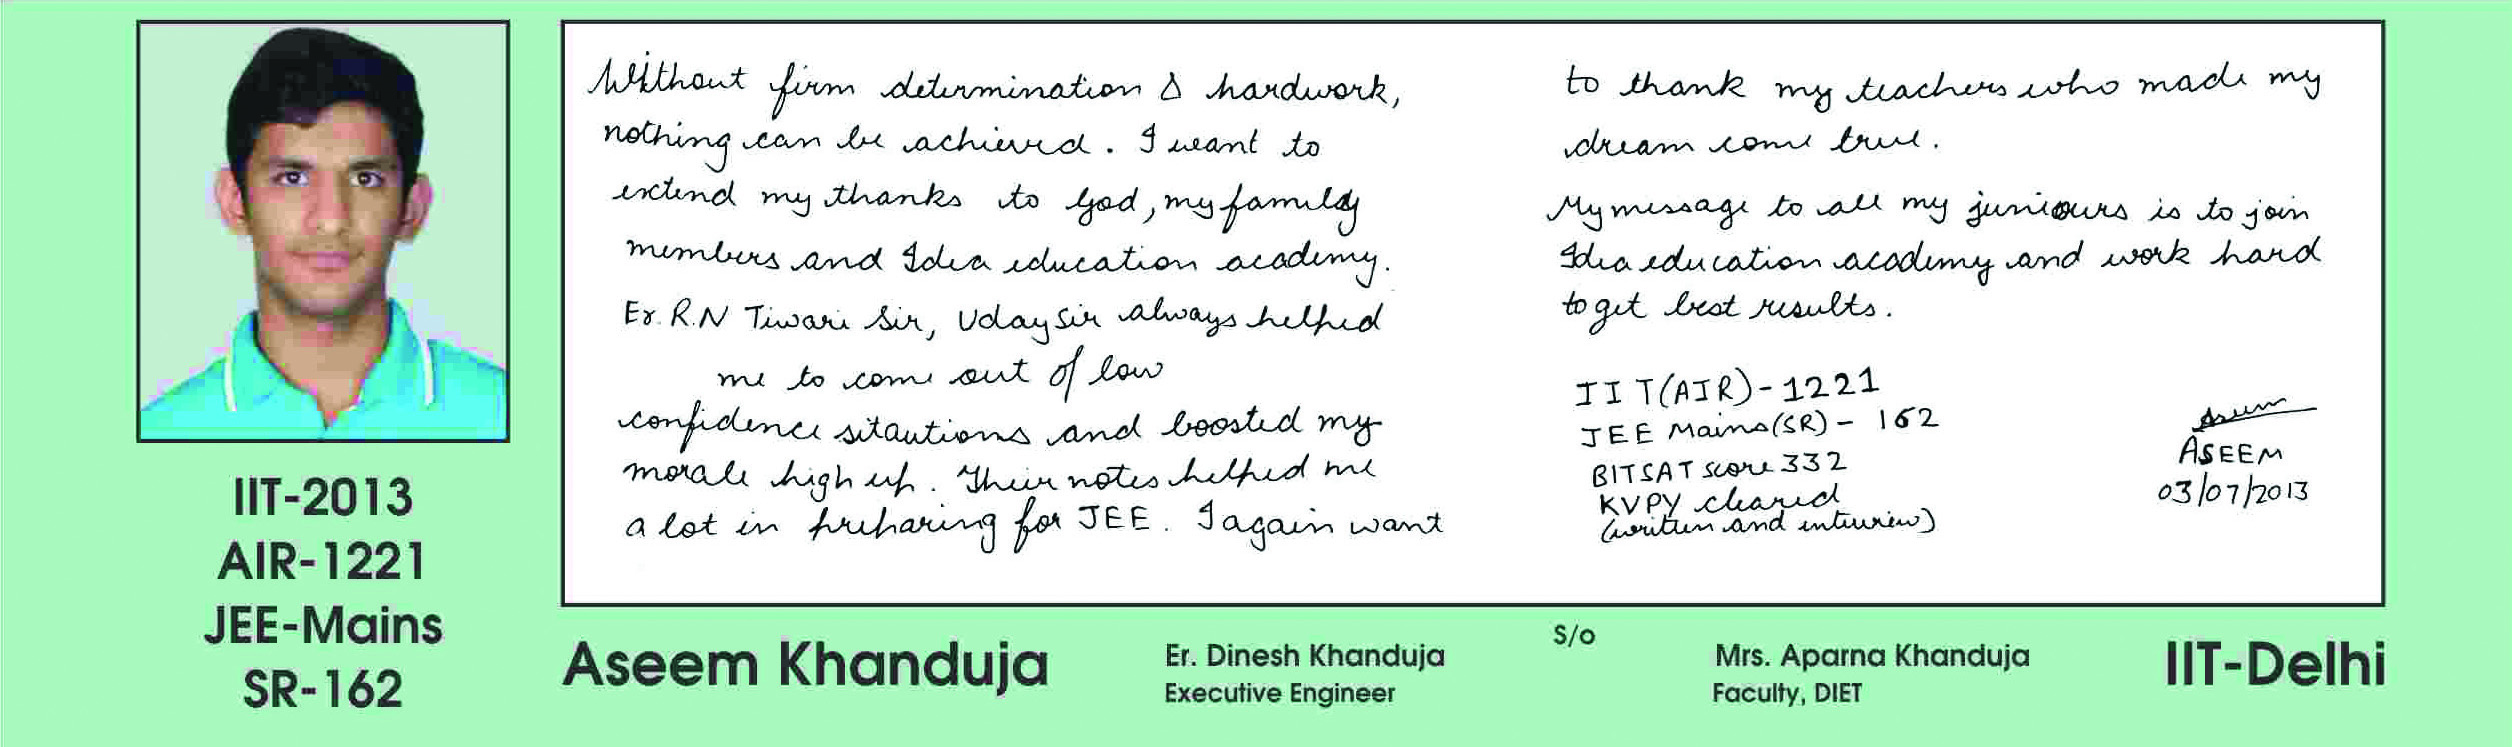 Without firm determination & hardwork,
nothing can be achieved. I want to
extend my thanks to God, my family
members and Idea education academy.
Er. R.N Tiwari Sir, Uday Sir always helped
me to come out of low
confidence sitautions and boosted my
morale high up. Their notes helped me
a lot in preparing for JEE. I again want
to thank my teachers who made my
dream come true.
My message to all my juniours is to join
Idea education academy and work hard
to get best results.
IIT(AIR)-1221
JEE Mains(SR) - 162
BITSAT score 332
KVPY cleared
(written and interview)
Aseem
ASEEM
03/07/2013
IIT-2013
AIR-1221
JEE-Mains
SR-162
Aseem Khanduja
Er. Dinesh Khanduja
Executive Engineer
S/o
Mrs. Aparna Khanduja
Faculty, DIET
IIT-Delhi